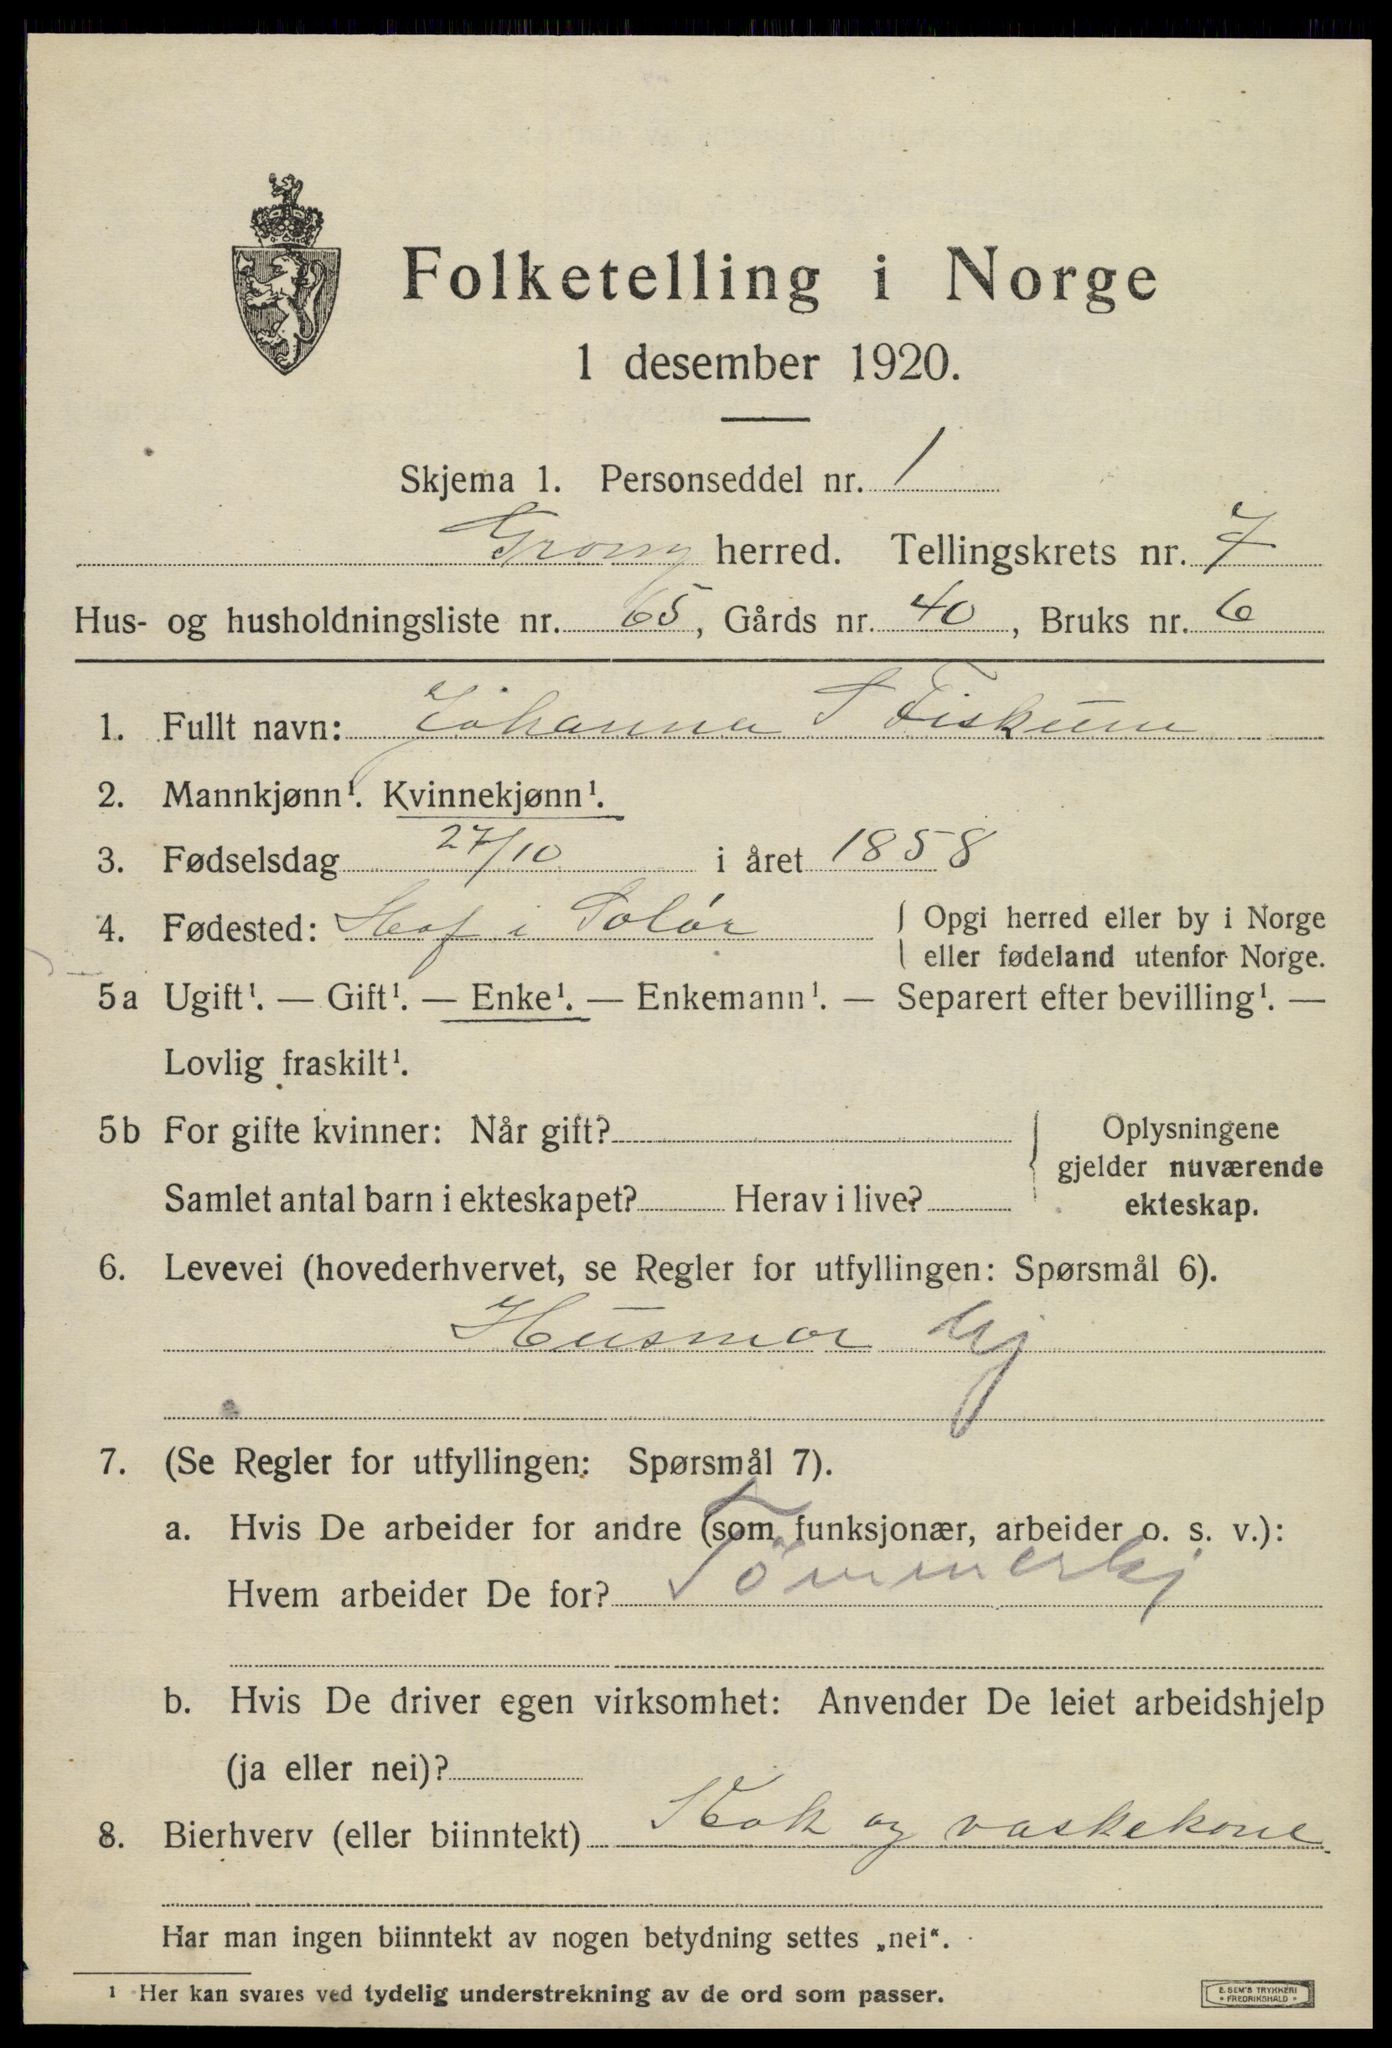 Folketelling i Norge
1 desember 1920.
Skjema 1. Personseddel nr. 1
Grong herred. Tellingskrets nr. 7
Hus- og husholdningsliste nr. 65, Gårds nr. 40, Bruks nr. 6
1. Fullt navn: Johanna T Fiskum
2. Mannkjønn¹. Kvinnekjønn¹.
3. Fødselsdag 27/10 i året 1858
4. Fødested: Hof i Solør { Opgi herred eller by i Norge
eller fødeland utenfor Norge.
5a Ugift¹. — Gift¹. — Enke¹. — Enkemann¹. — Separert efter bevilling¹. —
Lovlig fraskilt¹.
5b For gifte kvinner: Når gift?
Samlet antal barn i ekteskapet? Herav i live?
Oplysningene
gjelder nuværende
ekteskap.
6. Levevei (hovederhvervet, se Regler for utfyllingen: Spørsmål 6).
Husmor hj
7. (Se Regler for utfyllingen: Spørsmål 7).
a. Hvis De arbeider for andre (som funksjonær, arbeider o. s. v.):
Hvem arbeider De for? Tømmerhj
b. Hvis De driver egen virksomhet: Anvender De leiet arbeidshjelp
(ja eller nei)?
8. Bierhverv (eller biinntekt) Kok og vaskekone
Har man ingen biinntekt av nogen betydning settes „nei“.
¹ Her kan svares ved tydelig understrekning av de ord som passer.
E. SEM'S TRYKKERI
FREDRIKSHALD